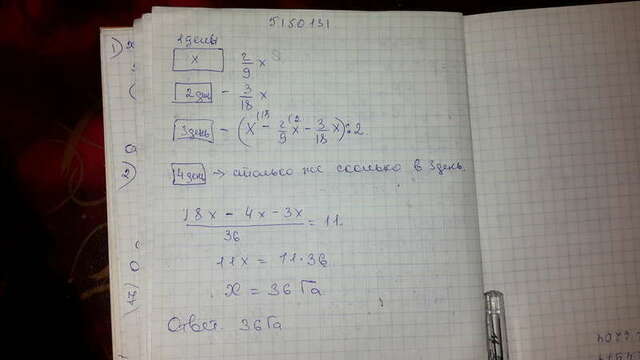 5150131
1) 1 день
x 2/9 x
2 день - 3/18 x
3 день - (x (18 - 2/9 x (2 - 3/18 x) : 2
2) 4 день → столько же сколько в 3 день.
18x - 4x - 3x / 36 = 11.
11x = 11·36
x = 36 Га
Ответ. 36 Га